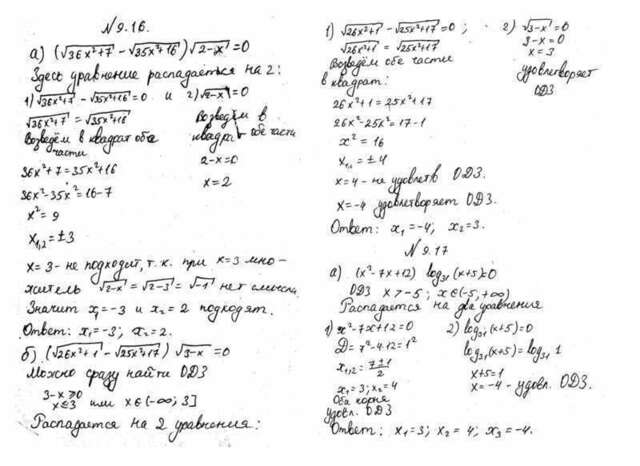 № 9.16.
а) (√36x²+7 - √35x²+16) √2-x = 0
Здесь уравнение распадается на 2:
1) √36x²+7 - √35x²+16 = 0 и 2) √2-x = 0
√36x²+7 = √35x²+16
Возведём в квадрат оба
части
Возведём в
квадрат обе части
36x²+7 = 35x²+16
2-x=0
36x²-35x² = 16-7
x = 2
x² = 9
x₁,₂ = ±3
x = 3 - не подходит, т.к. при x = 3 мно-
житель √2-x = √2-3 = √-1 нет смысла
Значит x₁ = -3 и x₂ = 2 подходят.
Ответ: x₁ = -3; x₂ = 2.
б) (√26x²+1 - √25x²+17) √3-x = 0
Можно сразу найти ОДЗ
3-x ≥ 0
x ≤ 3 или x ∈ (-∞; 3]
Распадается на 2 уравнения:
1) √26x²+1 - √25x²+17 = 0;
√26x²+1 = √25x²+17
Возведём обе части
в квадрат:
2) √3-x = 0
3-x = 0
x = 3
удовлетворяет
ОДЗ
26x²+1 = 25x²+17
26x²-25x² = 17-1
x² = 16
x₁,₂ = ±4
x = 4 - не удовлетв ОДЗ.
x = -4 удовлетворяет ОДЗ.
Ответ: x₁ = -4; x₂ = 3.
№ 9.17
а) (x²-7x+12) log₃,₁ (x+5) = 0
ОДЗ x > -5; x ∈ (-5; +∞)
Распадается на два уравнения
1) x²-7x+12 = 0
D = 7²-4·12 = 1²
x₁,₂ = 7±1/2
x₁ = 3; x₂ = 4
Оба корня
удовл. ОДЗ
2) log₃,₁ (x+5) = 0
log₃,₁ (x+5) = log₃,₁ 1
x+5 = 1
x = -4 - удовл. ОДЗ.
Ответ: x₁ = 3; x₂ = 4; x₃ = -4.